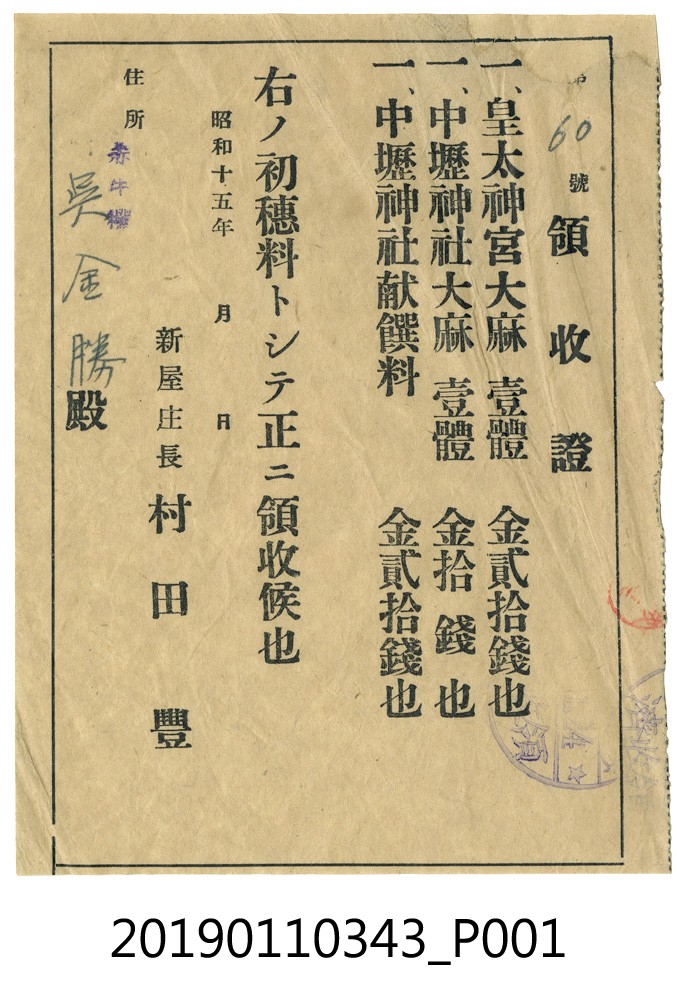 第60號
領收證
一、皇太神宮大麻 壹體 金貳拾錢也
一、中壢神社大麻 壹體 金拾錢也
一、中壢神社献饌料 金貳拾錢也
右ノ初穗料トシテ正ニ領收候也
昭和十五年 月 日
新屋庄長 村田豐
住所 赤牛欄
吳金勝殿
領
20190110343_P001